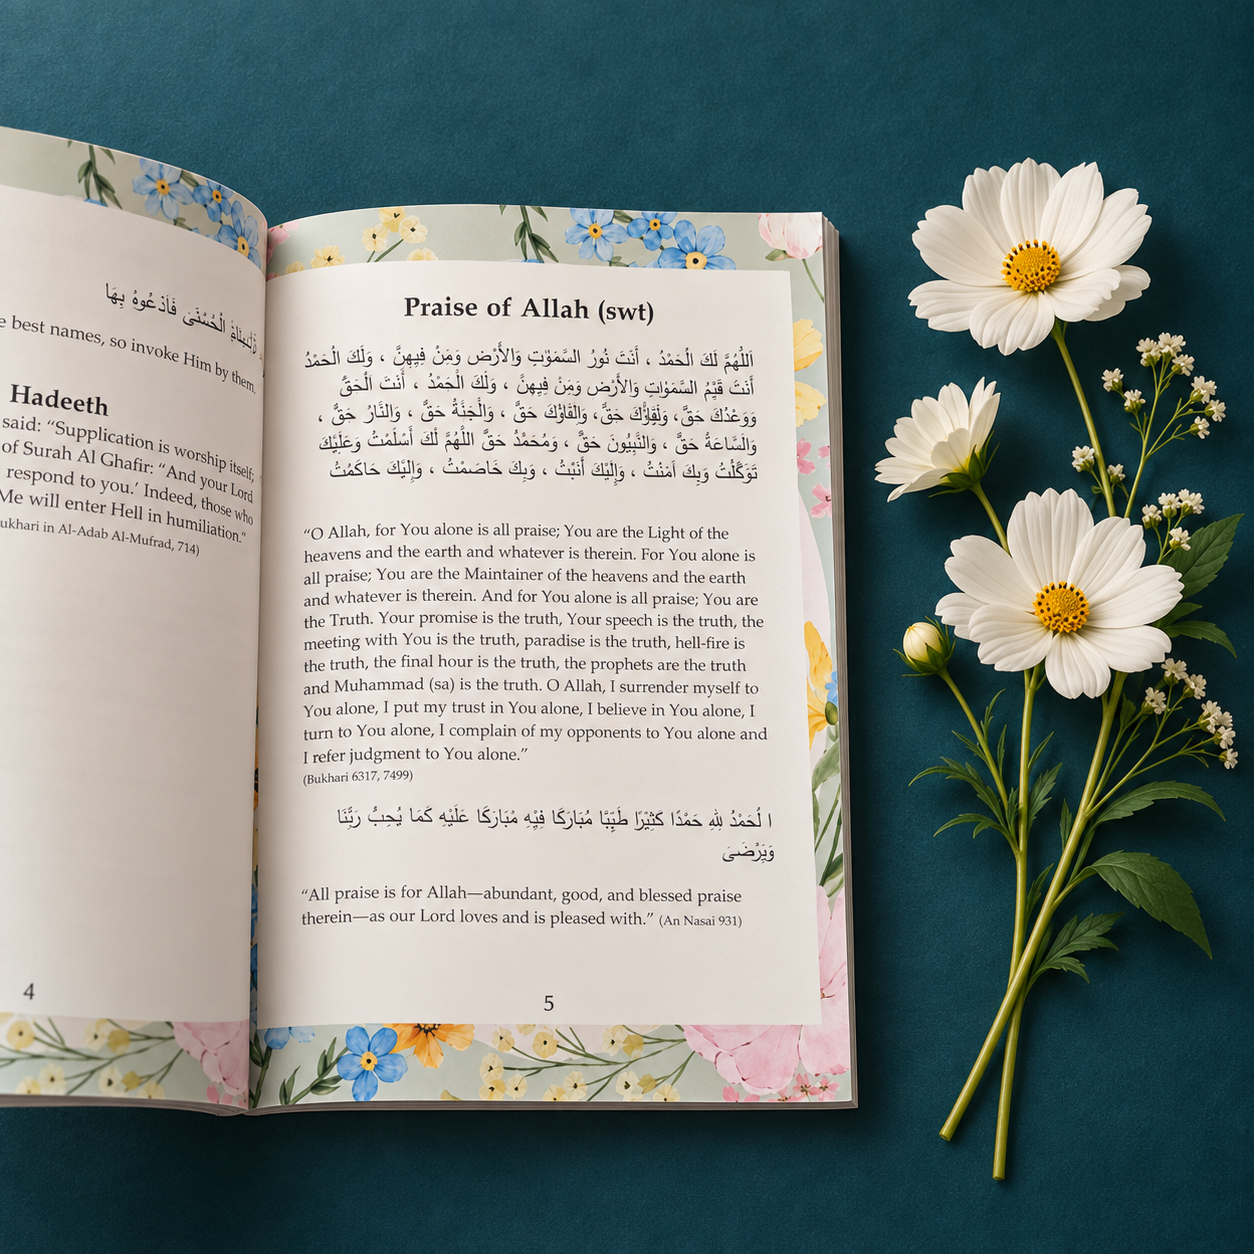 الْحُسْنَى فَادْعُوهُ بِهَا
e best names, so invoke Him by them.
Hadeeth
said: “Supplication is worship itself;
of Surah Al Ghafir: “And your Lord
respond to you.’ Indeed, those who
Me will enter Hell in humiliation.”
ukhari in Al-Adab Al-Mufrad, 714)
4
Praise of Allah (swt)
اَللّٰهُمَّ لَكَ الْحَمْدُ ، أَنْتَ نُورُ السَّمَوٰتِ وَالأَرْضِ وَمَنْ فِيهِنَّ ، وَلَكَ الْحَمْدُ
أَنْتَ قَيِّمُ السَّمَوٰاتِ وَالأَرْضِ وَمَنْ فِيهِنَّ ، وَلَكَ الْحَمْدُ ، أَنْتَ الْحَقُّ
وَوَعْدُكَ حَقٌّ، وَلِقَاؤُكَ حَقٌّ، حَقٌّ ، وَالْجَنَّةُ حَقٌّ ، وَالنَّارُ حَقٌّ ،
وَالسَّاعَةُ حَقٌّ ، وَالنَّبِيُّونَ حَقٌّ ، وَمُحَمَّدٌ حَقٌّ اللَّهُمَّ لَكَ أَسْلَمْتُ وَعَلَيْكَ
تَوَكَّلْتُ وَبِكَ آمَنْتُ ، وَإِلَيْكَ أَنَبْتُ ، وَبِكَ خَاصَمْتُ ، وَإِلَيْكَ حَاكَمْتُ
“O Allah, for You alone is all praise; You are the Light of the
heavens and the earth and whatever is therein. For You alone is
all praise; You are the Maintainer of the heavens and the earth
and whatever is therein. And for You alone is all praise; You are
the Truth. Your promise is the truth, Your speech is the truth, the
meeting with You is the truth, paradise is the truth, hell-fire is
the truth, the final hour is the truth, the prophets are the truth
and Muhammad (sa) is the truth. O Allah, I surrender myself to
You alone, I put my trust in You alone, I believe in You alone, I
turn to You alone, I complain of my opponents to You alone and
I refer judgment to You alone.”
(Bukhari 6317, 7499)
ا لْحَمْدُ لِلهِ حَمْدًا كَثِيْرًا طَيِّبًا مُبَارَكًا فِيْهِ مُبَارَكًا عَلَيْهِ كَمَا يُحِبُّ رَبُّنَا
وَيَرْضَىٰ
“All praise is for Allah—abundant, good, and blessed praise
therein—as our Lord loves and is pleased with.” (An Nasai 931)
5